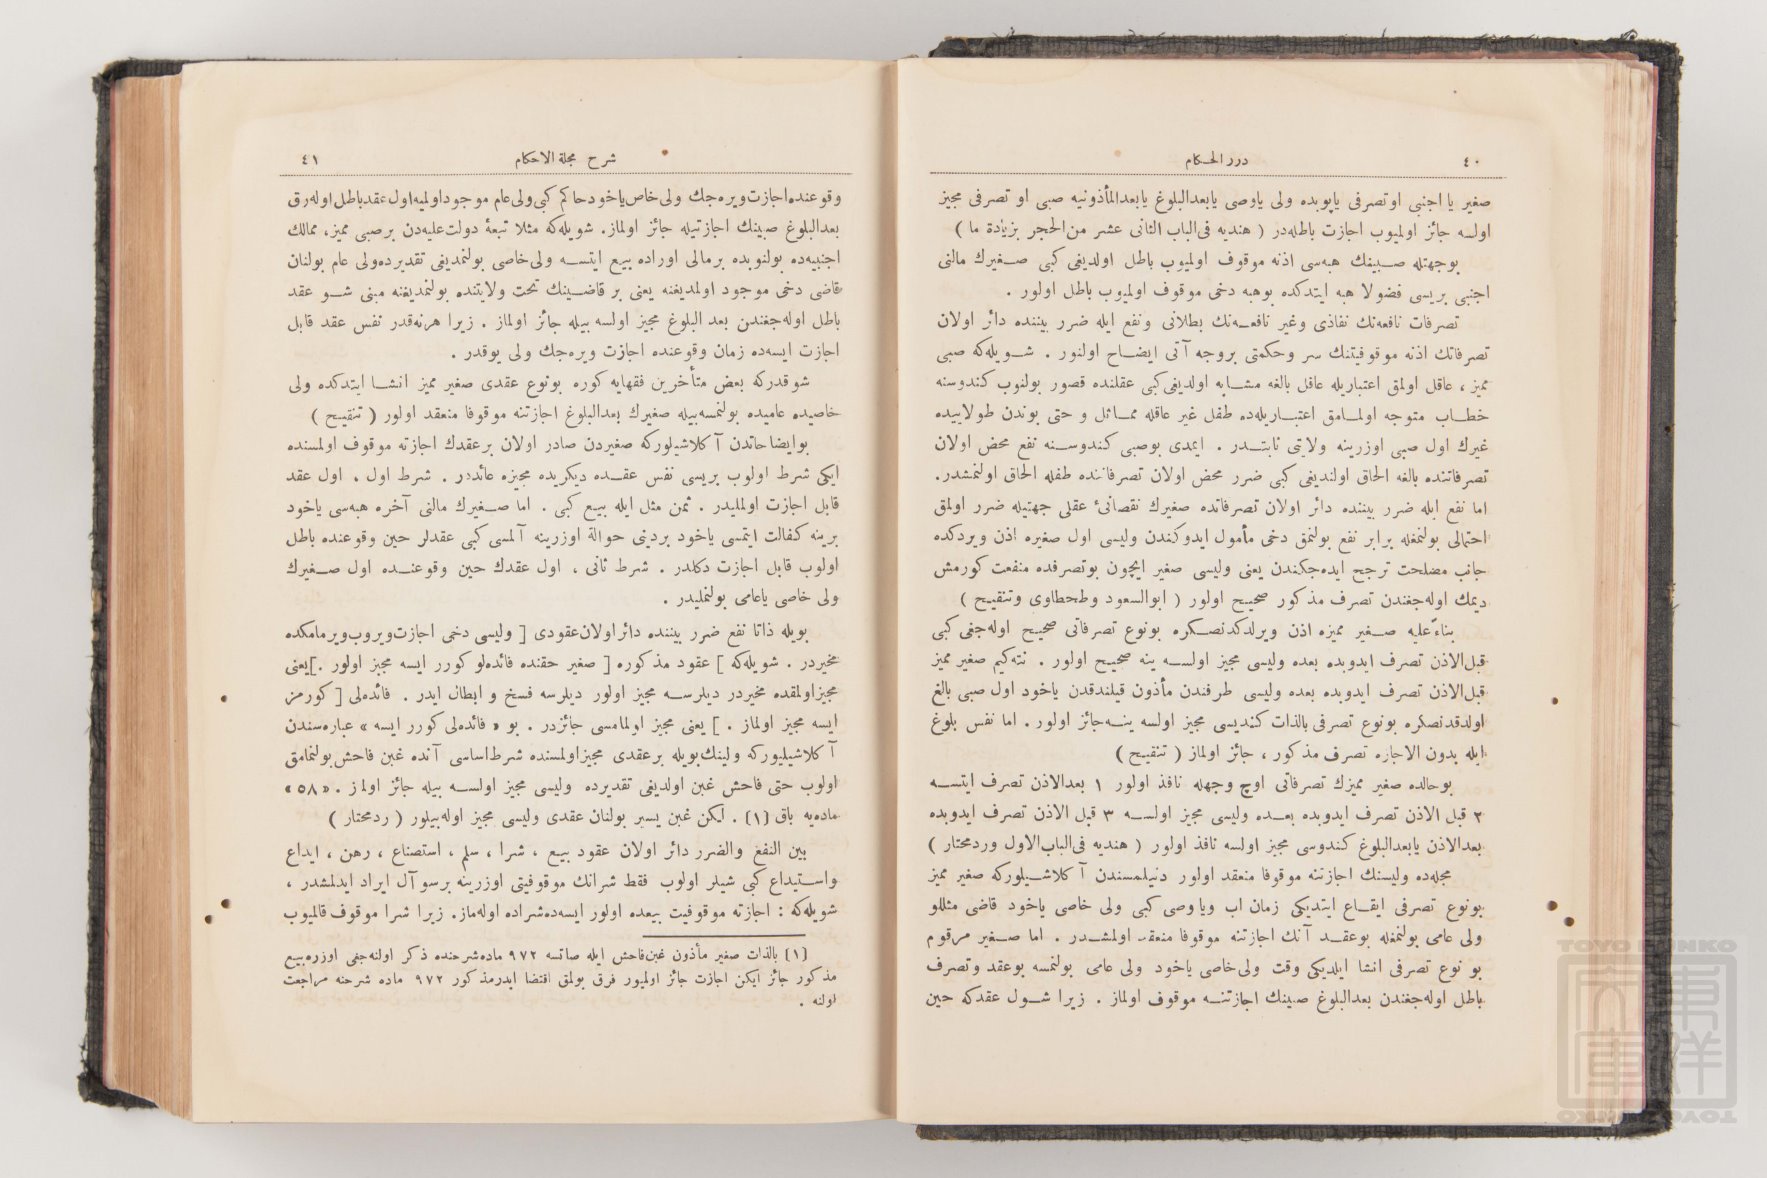 ٤٠
درر الحكام
صغير يا اجنبى اوتصرفى ياپوبده ولى ياوصى يابعدالبلوغ يابعدالمأذونيه صبى او تصرفى مجيز
اولسه جائز اولميوب اجازت باطله‌در ( هنديه فى‌الباب الثانى عشر من‌الحجر بزيادة ما )
بوجهتله صبينك هبه‌سى اذنه موقوف اولميوب باطل اولديغى كبى صغيرك مالنى
اجنبى بريسى فضولا هبه ايتدكده بوهبه دخى موقوف اولميوب باطل اولور .
تصرفات نافعه‌نك نفاذى وغير نافعه‌نك بطلانى ونفع ايله ضرر بيننده دائر اولان
تصرفاتك اذنه موقوفيتنك سر وحكمتى بروجه آتى ايضاح اولنور . شويله‌كه صبى
مميز ، عاقل اولمق اعتباريله عاقل بالغه مشابه اولديغى‌كبى عقلنده قصور بولنوب كندوسنه
خطاب متوجه اولمامق اعتباريله‌ده طفل غير عاقله مماثل و حتى بوندن طولاييده
غيرك اول صبى اوزرينه ولايتى ثابتدر . ايمدى بوصبى كندوسنه نفع محض اولان
تصرفاتنده بالغه الحاق اولنديغى كبى ضرر محض اولان تصرفاتنده طفله الحاق اولنمشدر.
اما نفع ايله ضرر بيننده دائر اولان تصرفاتده صغيرك نقصانئ عقلى جهتيله ضرر اولمق
احتمالى بولنمغله برابر نفع بولنمق دخى مأمول ايدوكندن وليسى اول صغيره اذن ويردكده
جانب مصلحت ترجح ايده‌جكندن يعنى وليسى صغير ايچون بوتصرفده منفعت كورمش
ديمك اوله‌جغندن تصرف مذكور صحيح اولور ( ابوالسعود وطحطاوى وتنقيح )
بناءً عليه صغير مميزه اذن ويرلدكدنصكره بونوع تصرفاتى صحيح اوله‌جغى كبى
قبل‌الاذن تصرف ايدوبده بعده وليسى مجيز اولسه ينه صحيح اولور . نته‌كيم صغير مميز
قبل‌الاذن تصرف ايدوبده بعده وليسى طرفندن مأذون قيلندقدن ياخود اول صبى بالغ
اولدقدنصكره بونوع تصرفى بالذات كنديسى مجيز اولسه ينه‌جائز اولور . اما نفس بلوغ
ايله بدون الاجازه تصرف مذكور ، جائز اولماز ( تنقيح )
بوحالده صغير مميزك تصرفاتى اوچ وجهله نافذ اولور ١ بعدالاذن تصرف ايتسه
٢ قبل الاذن تصرف ايدوبده بعده وليسى مجيز اولسه ٣ قبل الاذن تصرف ايدوبده
بعدالاذن يابعدالبلوغ كندوسى مجيز اولسه نافذ اولور ( هنديه فى‌الباب‌الاول وردمحتار )
مجله‌ده وليسنك اجازتنه موقوفا منعقد اولور دنيلمسندن آ كلاشيلوركه صغير مميز
بونوع تصرفى ايقاع ايتديكى زمان اب وياوصى كبى ولى خاصى ياخود قاضى مثللو
ولى عامى بولنمغله بوعقد آنك اجازتنه موقوفا منعقد اولمشدر . اما صغير مرقوم
بو نوع تصرفى انشا ايلديكى وقت ولى‌خاصى ياخود ولى عامى بولنمسه بوعقد وتصرف
باطل اوله‌جغندن بعدالبلوغ صبينك اجازتنه موقوف اولماز . زيرا شول عقدكه حين
شرح مجلة الاحكام
٤١
وقوعنده اجازت‌ويره‌جك ولى‌خاص ياخود حاكم كبى‌ولى‌عام موجود اولميه اول عقد باطل اوله‌رق
بعدالبلوغ صبينك اجازتيله جائز اولماز. شويله‌كه مثلا تبعۀ دولت‌عليه‌دن برصبى مميز، ممالك
اجنبيه‌ده بولنوبده برمالى اوراده بيع ايتسه ولى‌خاصى بولنمديغى تقديرده‌ولى عام بولنان
قاضى دخى موجود اولمديغنه يعنى بر قاضينك تحت ولايتنده بولنمديغنه مبنى شو عقد
باطل اوله‌جغندن بعد البلوغ مجيز اولسه بيله جائز اولماز . زيرا هرنه‌قدر نفس عقد قابل
اجازت ايسه‌ده زمان وقوعنده اجازت ويره‌جك ولى يوقدر .
شوقدركه بعض متأخرين فقهايه كوره بونوع عقدى صغير مميز انشا ايتدكده ولى
خاصيده عاميده بولنمسه‌بيله صغيرك بعدالبلوغ اجازتنه موقوفا منعقد اولور ( تنقيح )
بوايضاحاتدن آ كلاشيلوركه صغيردن صادر اولان برعقدك اجازته موقوف اولمسنده
ايكى شرط اولوب بريسى نفس عقده ديكريده مجيزه عائددر . شرط اول . اول عقد
قابل اجازت اولمليدر . ثمن مثل ايله بيع كبى . اما صغيرك مالنى آخره هبه‌سى ياخود
برينه كفالت ايتمسى ياخود بردينى حوالة اوزرينه آلمسى كبى عقدلر حين وقوعنده باطل
اولوب قابل اجازت دكلدر . شرط ثانى ، اول عقدك حين وقوعنده اول صغيرك
ولى خاصى ياعامى بولنمليدر .
بويله ذاتا نفع ضرر بيننده دائراولان‌عقودى [ وليسى دخى اجازت‌ويروب‌ويرمامكده
مخيردر . شويله‌كه ] عقود مذكوره [ صغير حقنده فائده‌لو كورر ايسه مجيز اولور .]يعنى
مجيزاولمقده مخيردر ديلرسه مجيز اولور ديلرسه فسخ و ابطال ايدر . فائده‌لى [ كورمز
ايسه مجيز اولماز . ] يعنى مجيز اولمامسى جائزدر . بو « فائده‌لى كورر ايسه » عباره‌سندن
آ كلاشيليوركه ولينك‌بويله برعقدى مجيزاولمسنده شرط‌اساسى آنده غبن فاحش‌بولنمامق
اولوب حتى فاحش غبن اولديغى تقديرده وليسى مجيز اولسه بيله جائز اولماز . «٥٨»
ماده‌يه باق (١) . ليكن غبن يسير بولنان عقدى وليسى مجيز اوله‌بيلور ( ردمحتار )
بين النفع والضرر دائر اولان عقود بيع ، شرا ، سلم ، استصناع ، رهن ، ايداع
واستيداع كبى شيلر اولوب فقط شرانك موقوفيتى اوزرينه برسوآل ايراد ايدلمشدر ،
شويله‌كه : اجازته موقوفيت بيعده اولور ايسه‌ده‌شراده اوله‌ماز. زيرا شرا موقوف قالميوب
(١) بالذات صغير مأذون غبن‌فاحش ايله صاتسه ٩٧٢ ماده‌شرحنده ذكر اولنه‌جغى اوزره‌بيع
مذكور جائز ايكن اجازت جائز اولميور فرق بولمق اقتضا ايدرمذكور ٩٧٢ ماده شرحنه مراجعت
اولنه .
TOYO BUNKO
東洋文庫